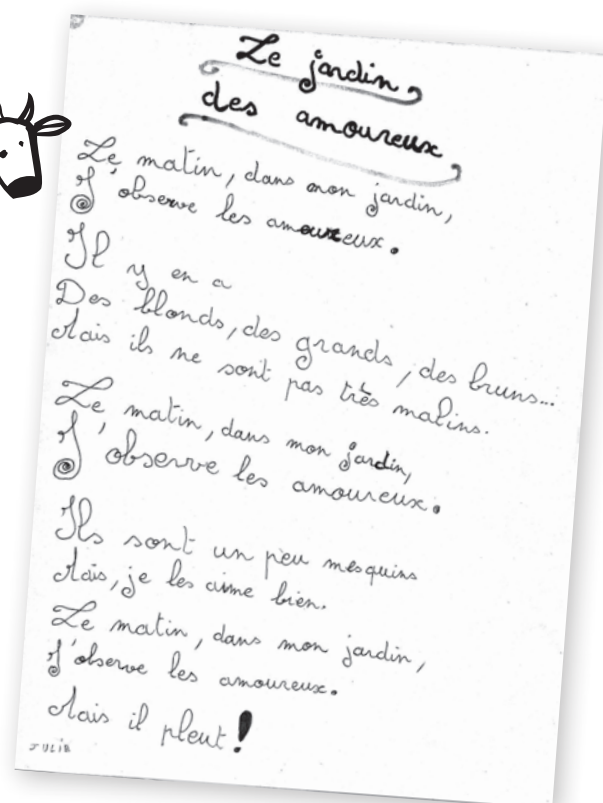 Le jardin
des amoureux
Le matin, dans mon jardin,
J'observe les amoureux.
Il y en a
Des blonds, des grands, des bruns...
Mais ils ne sont pas très malins.
Le matin, dans mon jardin,
J'observe les amoureux.
Ils sont un peu mesquins
Mais, je les aime bien.
Le matin, dans mon jardin,
J'observe les amoureux.
Mais il pleut !
JULIE